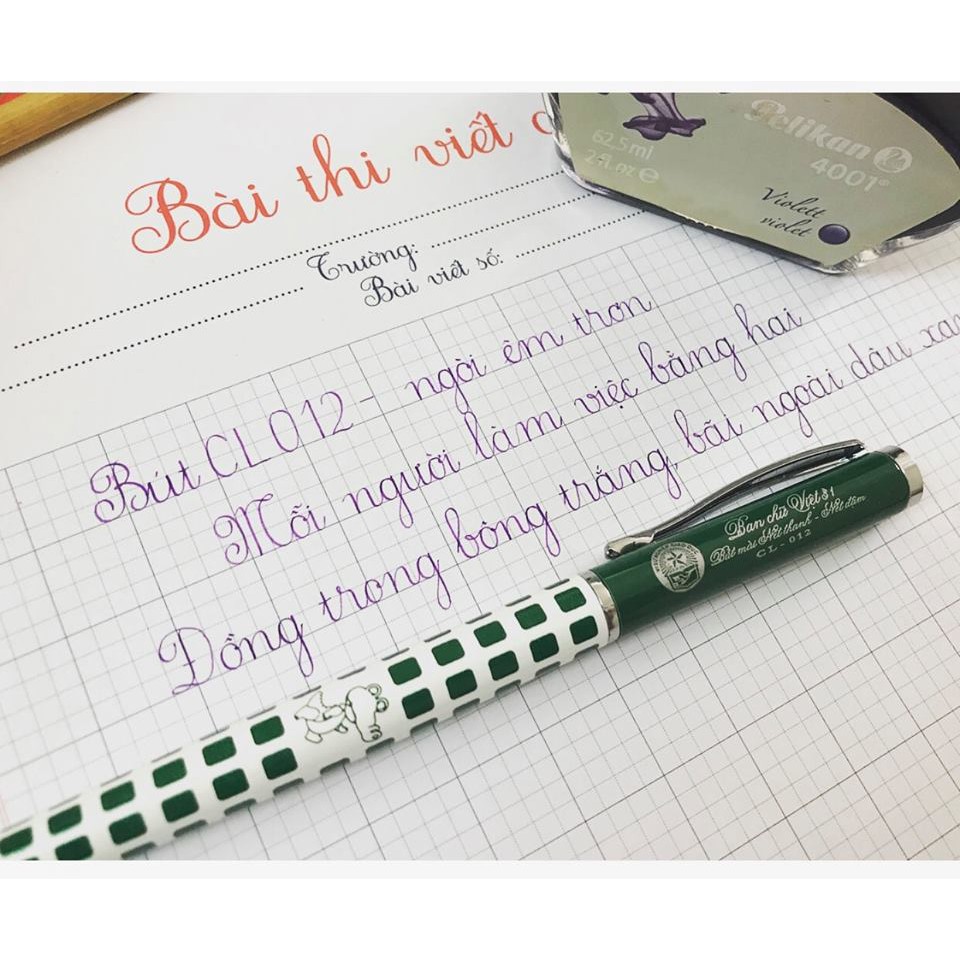 Bài thi viết
Trường:
Bài viết số:
Pelikan
4001®
62,5ml
2 fl.oz ℮
Violett
violet
Bút CL 012 - ngòi êm trơn
Mỗi người làm việc bằng hai
Đồng trong bông trắng, bãi ngoài dâu
Ban chữ Việt
Bút mài Nét thanh - Nét đậm
CL - 012